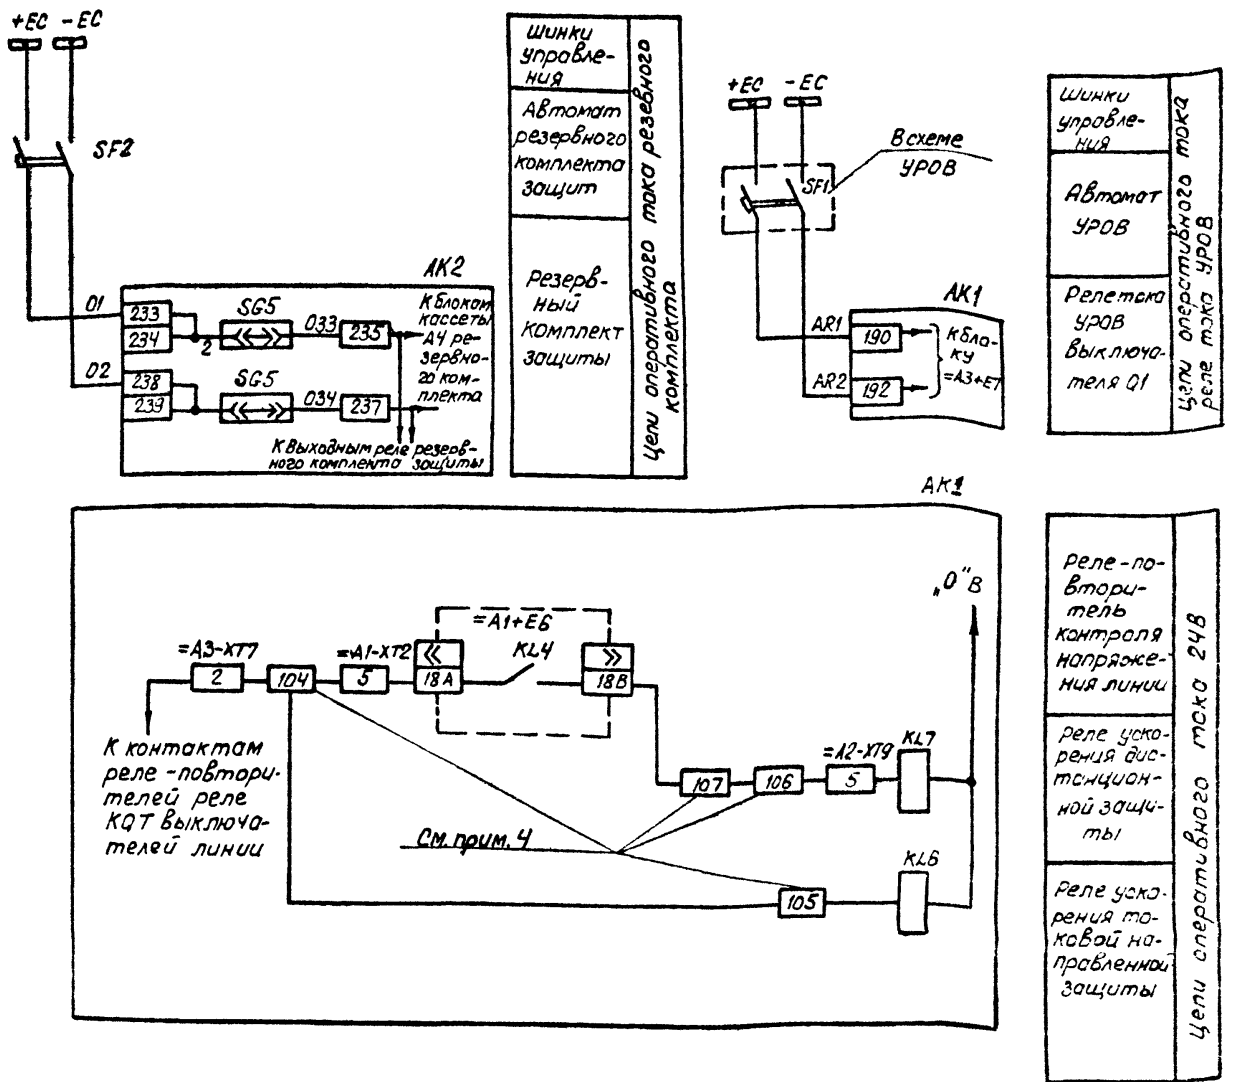 +EC -EC
SF2
01
02
AK2
233
234
2
SG5
033
235
238
239
SG5
034
237
К блокам
кассеты
А4 ре-
зервно-
го ком-
плекта
К выходным реле резерв-
ного комплекта защиты
Шинки
управле-
ния
Автомат
резервного
комплекта
защит
Резерв-
ный
комплект
защиты
Цепи оперативного тока резевного
комплекта
+EC -EC
SF1
В схеме
УРОВ
AK1
AR1
190
AR2
192
К бло-
ку
=А3+Е7
Шинки
управле-
ния
Автомат
УРОВ
Реле тока
УРОВ
выключа-
теля Q1
Цепи оперативного тока
реле тока УРОВ
AK1
„0“ В
=А1+Е6
=А3-ХТ7
2
104
=А1-ХТ2
5
18А
KL4
18В
К контактам
реле-повтори-
телей реле
KQT выключа-
телей линии
107
106
=А2-ХТ9
5
KL7
См. прим. 4
105
KL6
Реле-по-
втори-
тель
контроля
напряже-
ния линии
Реле уско-
рения дис-
танцион-
ной защи-
ты
Реле уско-
рения то-
ковой на-
правленной
защиты
Цепи оперативного тока 24В